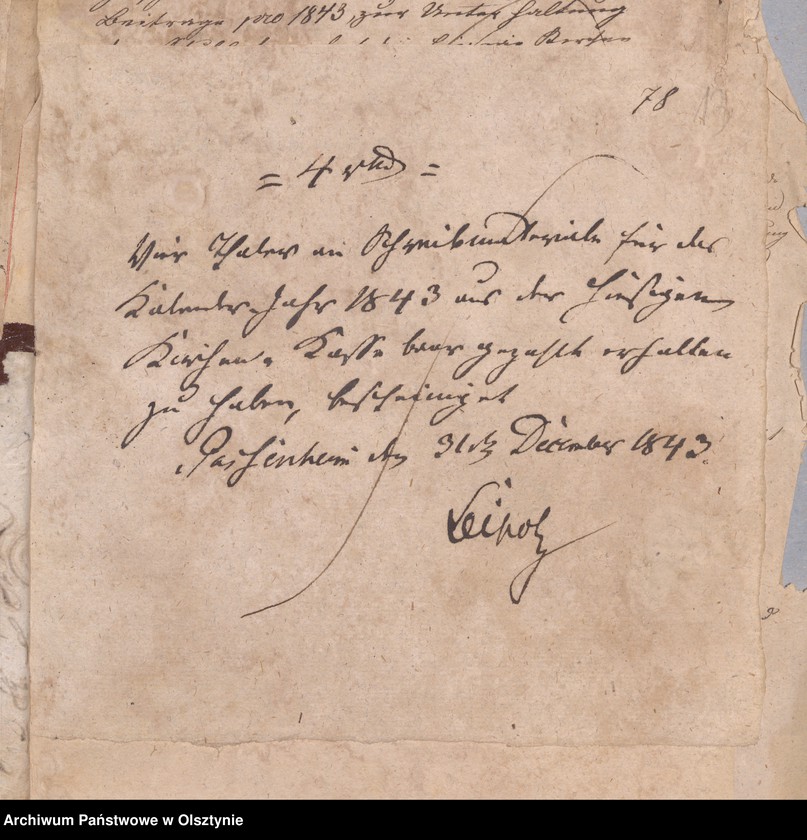 Beitrage pro 1843, zur Unterhaltung
78
= 4 rthl =
Vier Thaler an Schreibmaterialn für das
Kalender-Jahr 1843 aus der hiesigen
Kirchen-Kasse baar gezahlt erhalten
zu haben, bescheiniget
Passenheim den 31ten December 1843.
Archiwum Państwowe w Olsztynie